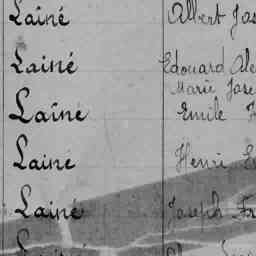 Lainé Albert Jos
Lainé Edouard Ale
Marie Jose
Lainé Emile F
Lainé Henri E
Lainé Joseph Fr
Lainé